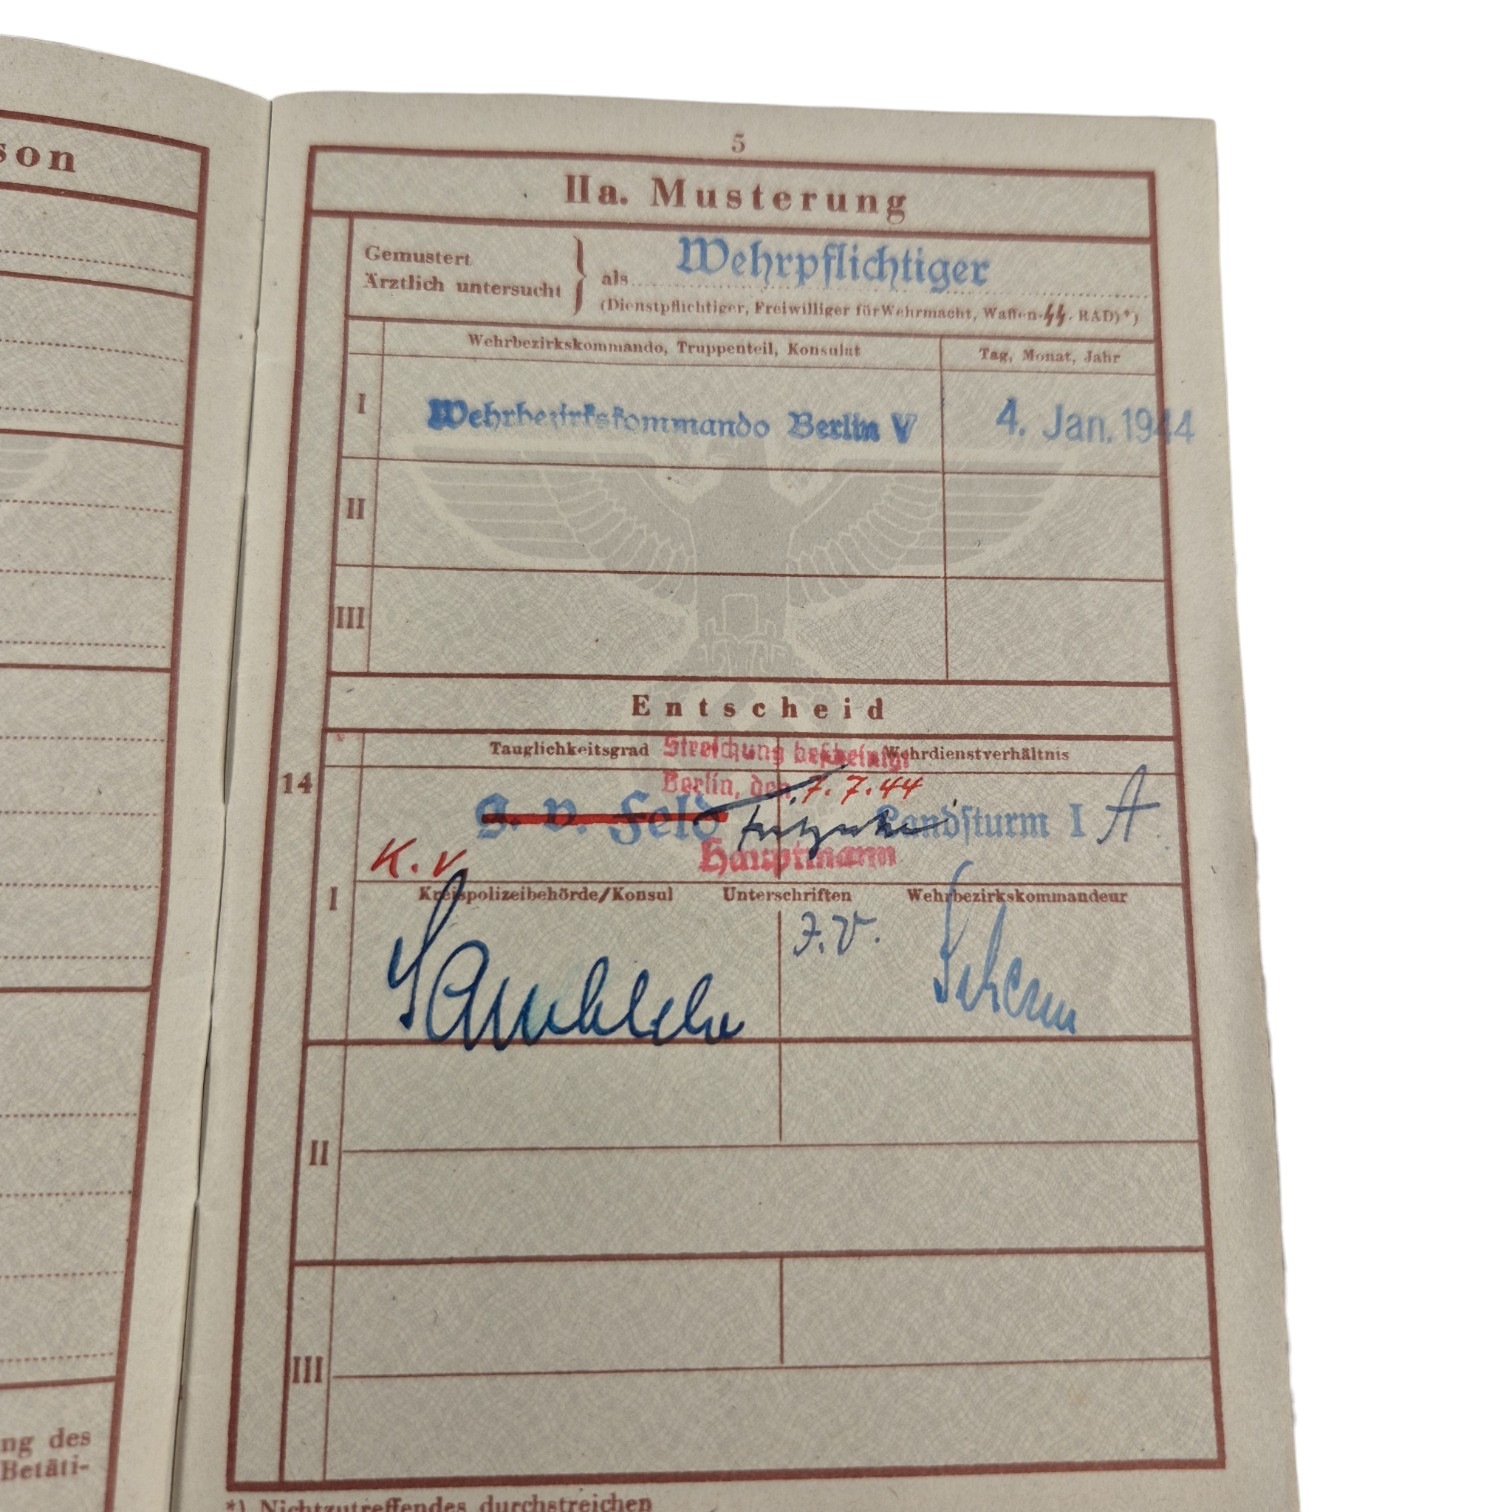 son
5
IIa. Musterung
Gemustert
Ärztlich untersucht
als Wehrpflichtiger
(Dienstpflichtiger, Freiwilliger für Wehrmacht, Waffen-SS, RAD)*)
Wehrbezirkskommando, Truppenteil, Konsulat
Tag, Monat, Jahr
I
Wehrbezirkskommando Berlin V
4. Jan. 1944
II
III
Entscheid
Tauglichkeitsgrad
Wehrdienstverhältnis
Streichung bescheinigt
Berlin, den 7.7.44
14
g. v. Feld
Landsturm I A
Hauptmann
K.v.
I
Kreispolizeibehörde/Konsul
Unterschriften
Wehrbezirkskommandeur
J.V.
II
III
ng des
Betäti-
*) Nichtzutreffendes durchstreichen